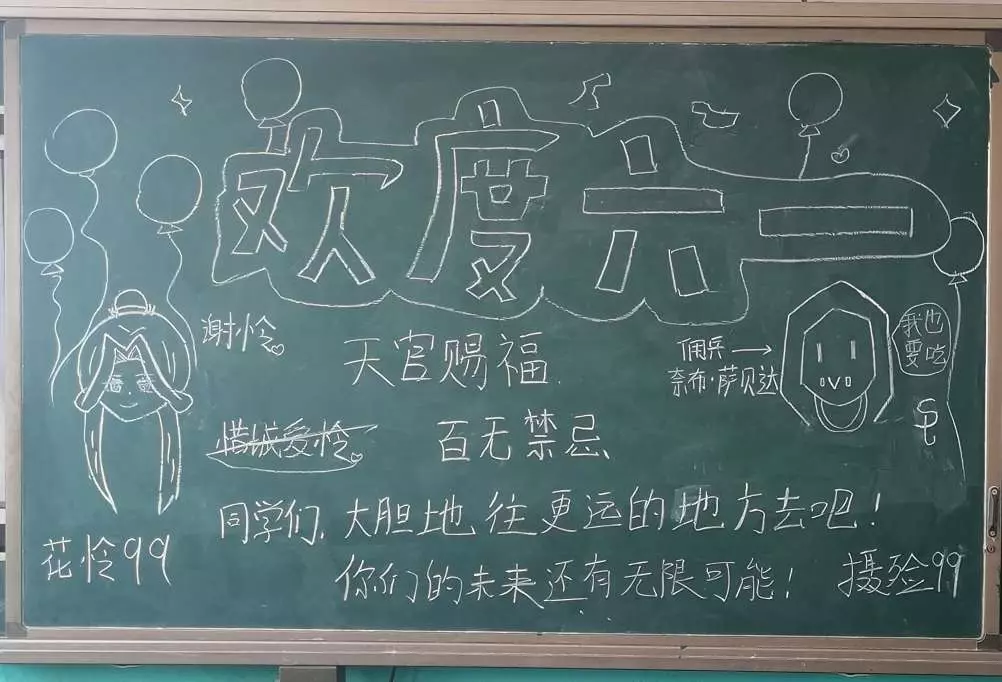 欢度六一
谢怜
天官赐福
佣兵
奈布·萨贝达
我也要吃
惜城爱怜
百无禁忌
同学们，大胆地往更远的地方去吧！
花怜99
你们的未来还有无限可能！
摄殓99